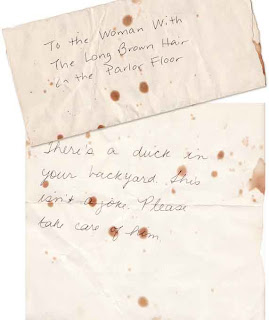 To the Woman With
The Long Brown Hair
On the Parlor Floor
There's a duck in
your backyard. This
isn't a joke. Please
take care of him.